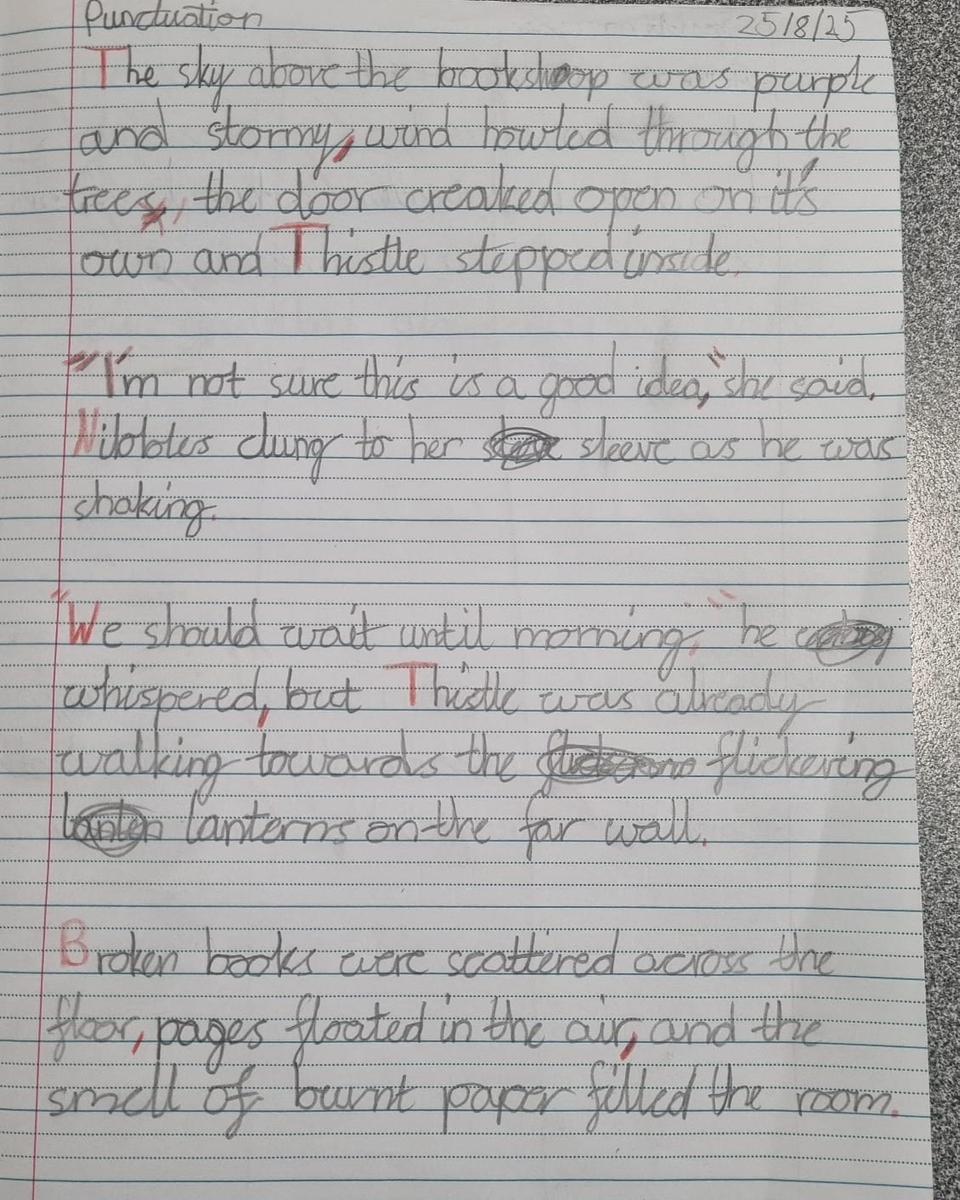 Punctuation 25/8/25
The sky above the bookshoop was purple
and stormy, wind howled through the
trees, the door creaked open on it's
own and Thistle stepped inside.
"I'm not sure this is a good idea," she said.
Nibbles clung to her sleeve as he was
shaking.
"We should wait until morning," he
whispered, but Thistle was already
walking towards the flickering
lanterns on the far wall.
Broken books were scattered across the
floor, pages floated in the air, and the
smell of burnt paper filled the room.